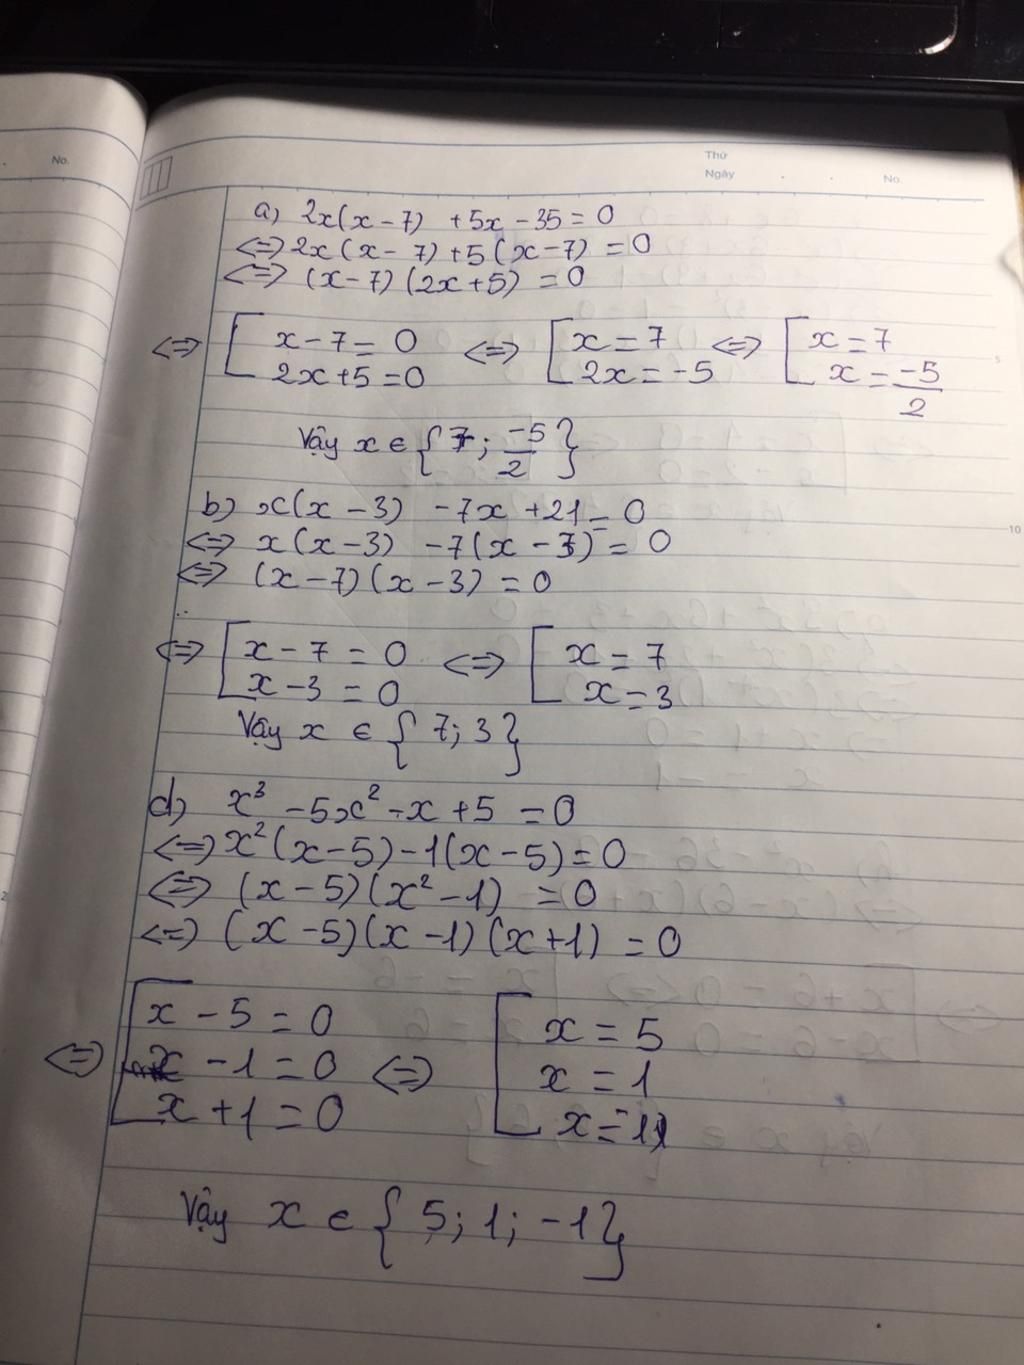 No.
Thứ
Ngày . . No.
a) 2x(x-7) +5x-35=0
<=> 2x(x-7)+5(x-7)=0
<=> (x-7)(2x+5)=0
<=> [ x-7=0 <=> [ x=7 <=> [ x=7
2x+5=0 2x=-5 x=-5/2
5
Vậy x ∈ {7; -5/2}
b) x(x-3) -7x+21=0
10
<=> x(x-3) -7(x-3)=0
<=> (x-7)(x-3)=0
<=> [ x-7=0 <=> [ x=7
x-3=0 x=3
Vậy x ∈ {7;3}
d) x³-5x²-x+5=0
<=> x²(x-5)-1(x-5)=0
<=> (x-5)(x²-1)=0
<=> (x-5)(x-1)(x+1)=0
[ x-5=0 [ x=5
<=> x-1=0 <=> x=1
x+1=0 x=-1
Vậy x ∈ {5;1;-1}